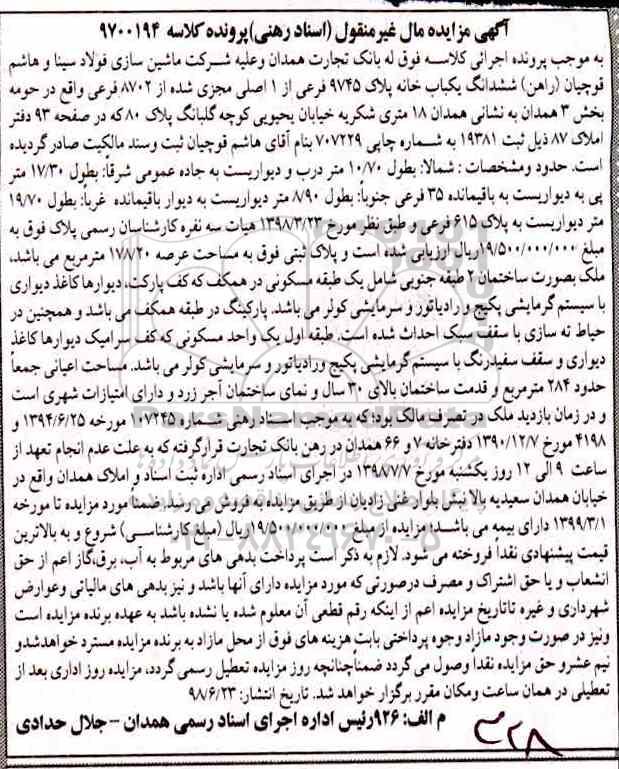 آگهی مزایده مال غیرمنقول (اسناد رهنی) پرونده کلاسه ۹۷۰۰۱۹۴
به موجب پرونده اجرائی کلاسه فوق له بانک تجارت همدان وعلیه شرکت ماشین سازی فولاد سینا و هاشم
قوچیان (راهن) ششدانگ یکباب خانه پلاک ۹۷۴۵ فرعی از ۱ اصلی مجزی شده از ۸۷۰۲ فرعی واقع در حومه
بخش ۳ همدان به نشانی همدان ۱۸ متری شکریه خیابان یحیویی کوچه گلبانگ پلاک ۸۰ که در صفحه ۹۳ دفتر
املاک ۸۷ ذیل ثبت ۱۹۳۸۱ به شماره چاپی ۷۰۷۲۲۹ بنام آقای هاشم قوچیان ثبت وسند مالکیت صادر گردیده
است. حدود ومشخصات : شمالا: بطول ۱۰/۷۰ متر درب و دیواریست به جاده عمومی شرقاً: بطول ۱۷/۳۰ متر
پی به دیواریست به باقیمانده ۳۵ فرعی جنوباً: بطول ۸/۹۰ متر دیواریست به دیوار باقیمانده غرباً: بطول ۱۹/۷۰
متر دیواریست به پلاک ۶۱۵ فرعی و طبق نظر مورخ ۱۳۹۸/۳/۲۳ هیات سه نفره کارشناسان رسمی پلاک فوق به
مبلغ ۱۹/۵۰۰/۰۰۰/۰۰۰ریال ارزیابی شده است و پلاک ثبتی فوق به مساحت عرصه ۱۷۸/۲۰ مترمربع می باشد،
ملک بصورت ساختمان ۲ طبقه جنوبی شامل یک طبقه مسکونی در همکف که کف پارکت، دیوارها کاغذ دیواری
با سیستم گرمایشی پکیج و رادیاتور و سرمایشی کولر می باشد. پارکینگ در طبقه همکف می باشد و همچنین در
حیاط ته سازی با سقف سبک احداث شده است. طبقه اول یک واحد مسکونی که کف سرامیک دیوارها کاغذ
دیواری و سقف سفیدرنگ با سیستم گرمایشی پکیج ورادیاتور و سرمایشی کولر می باشد. مساحت اعیانی جمعاً
حدود ۲۸۴ مترمربع و قدمت ساختمان بالای ۳۰ سال و نمای ساختمان آجر زرد و دارای امتیازات شهری است
و در زمان بازدید ملک در تصرف مالک بود؛ که به موجب اسناد رهنی شماره ۱۰۷۲۴۵ مورخه ۱۳۹۴/۶/۲۵ و
۴۱۹۸ مورخ ۱۳۹۰/۱۲/۷ دفترخانه ۷ و ۶۶ همدان در رهن بانک تجارت قرارگرفته که به علت عدم انجام تعهد از
ساعت ۹ الی ۱۲ روز یکشنبه مورخ ۱۳۹۸/۷/۷ در اجرای اسناد رسمی اداره ثبت اسناد و املاک همدان واقع در
خیابان همدان سعیدیه بالا نبش بلوار غنی زادیان از طریق مزایده به فروش می رسد. ضمنا مورد مزایده تا مورخه
۱۳۹۹/۳/۱ دارای بیمه می باشد؛ مزایده از مبلغ ۱۹/۵۰۰/۰۰۰/۰۰۰ریال (مبلغ کارشناسی) شروع و به بالاترین
قیمت پیشنهادی نقداً فروخته می شود. لازم به ذکر است پرداخت بدهی های مربوط به آب، برق،گاز اعم از حق
انشعاب و یا حق اشتراک و مصرف درصورتی که مورد مزایده دارای آنها باشد و نیز بدهی های مالیاتی وعوارض
شهرداری و غیره تاتاریخ مزایده اعم از اینکه رقم قطعی آن معلوم شده یا نشده باشد به عهده برنده مزایده است
ونیز در صورت وجود مازاد وجوه پرداختی بابت هزینه های فوق از محل مازاد به برنده مزایده مسترد خواهدشدو
نیم عشر و حق مزایده نقداً وصول می گردد ضمناًچنانچه روز مزایده تعطیل رسمی گردد، مزایده روز اداری بعد از
تعطیلی در همان ساعت ومکان مقرر برگزار خواهد شد. تاریخ انتشار: ۹۸/۶/۲۳
م الف: ۹۲۶رئیس اداره اجرای اسناد رسمی همدان – جلال حدادی
۳۲۸
ParsNamadData
۰۲۱-۸۸۳۴۹۶۷۰-۵